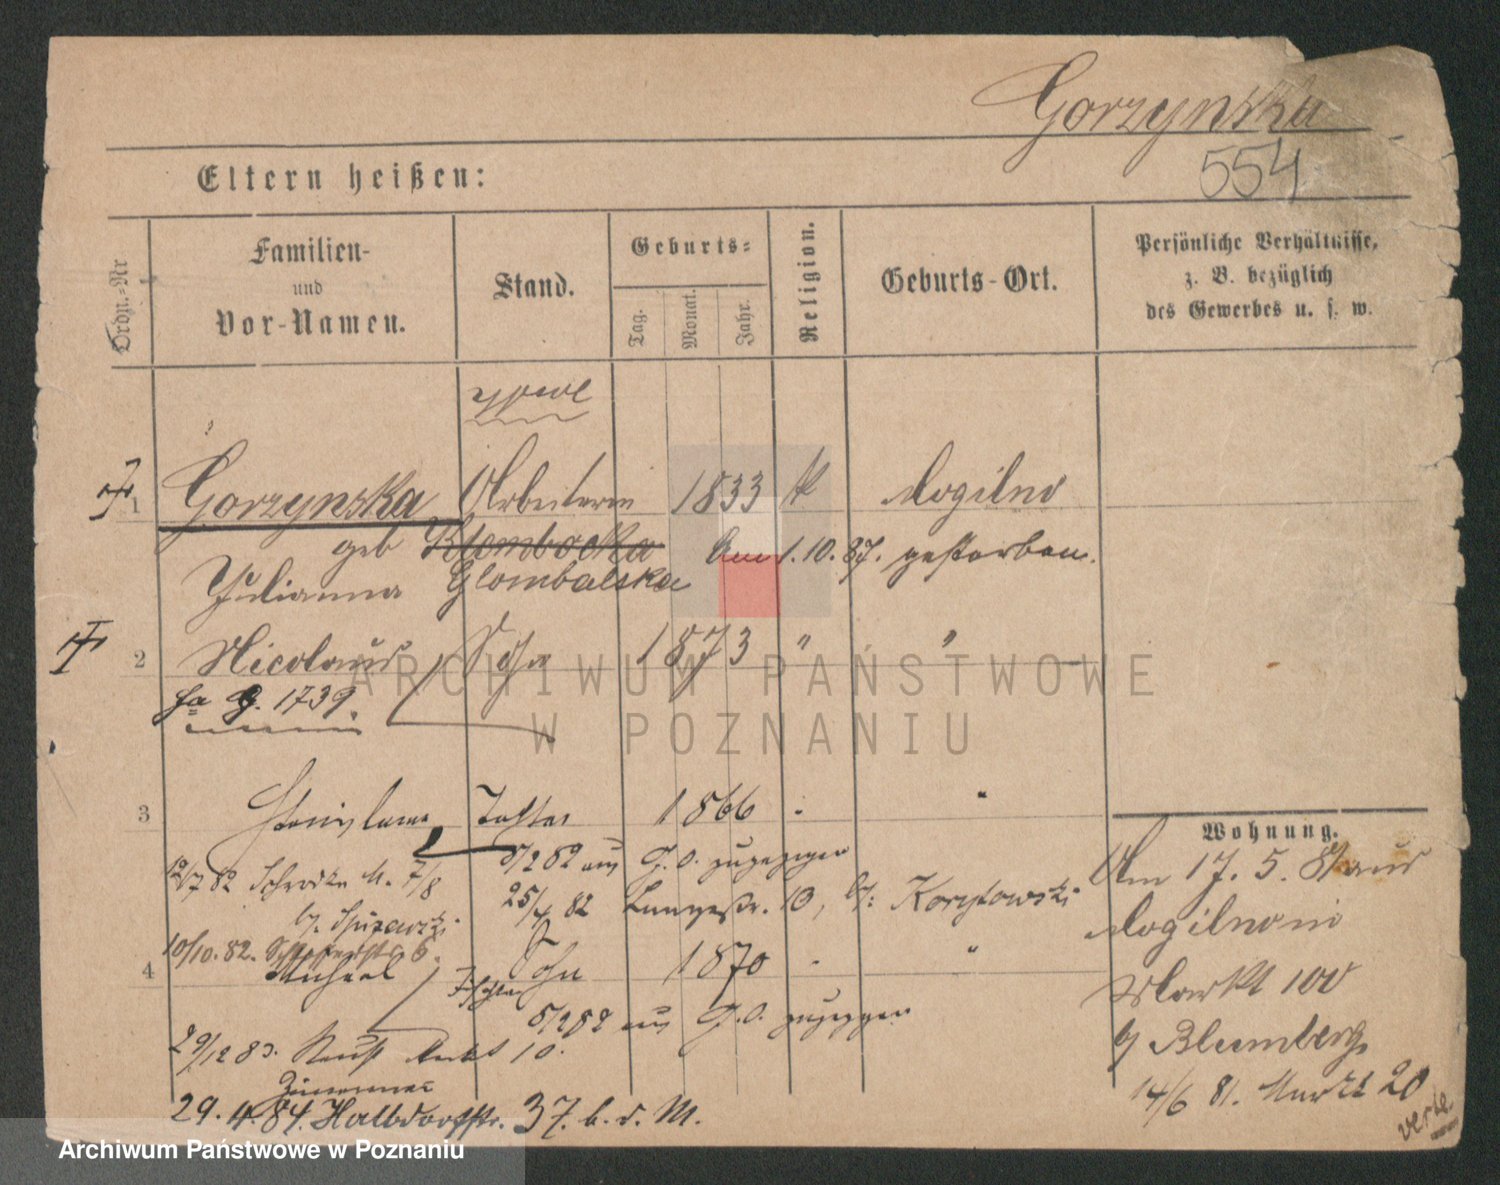 Gorzynska
554
Eltern heißen:
Ordn.-Nr
Familien-
und
Vor-Namen.
Stand.
Geburts-
Tag.
Monat.
Jahr.
Religion.
Geburts-Ort.
Persönliche Verhältnisse,
z. B. bezüglich
des Gewerbes u. s. w.
1 Gorzynska Arbeiterin 1833 k Mogilno
geb Klombocka am 1.10.87. gestorben.
Julianna Glombalska
2 Nicolaus Sohn 1873 " "
fa G. 1739.
3 Stanislawa Tochter 1866 - "
5/2 82 aus G.O. zugezogen
12/7 82 Schrodka M. 7/8
25/4 82 Langestr. 10, b/: Korytowski
10/10.82. 6.
4 Michael Sohn 1870 - "
Tochter
5/2 82 aus G.O. zugezogen
29/12 83. Neust Markt 10.
29.4.84. Halbdorfstr. 37. b. d. M.
Wohnung.
Am 17. 5. 81 aus
Mogilno in
Markt 100
b/ Blumberg
14/6 81. Markt 20
verte
ARCHIWUM PAŃSTWOWE
W POZNANIU
Archiwum Państwowe w Poznaniu